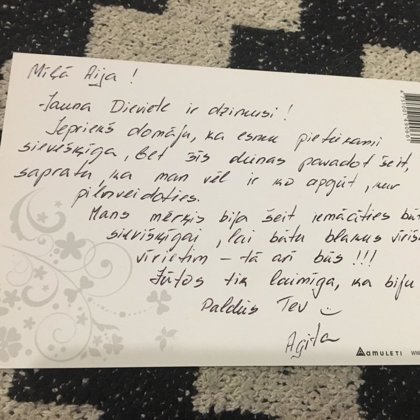 Mīļā Aija!
Jauna Dieviete ir dzimusi!
Iepriekš domāju, ka esmu pietiekami
sievišķīga, bet šīs dienas pavadot šeit,
sapratu, ka man vēl ir ko apgūt, kur
pilnveidoties.
Mans mērķis bija šeit iemācīties būt
sievišķīgai, lai būtu blakus
vīrietim - tā arī būs!!!
Jūtos tik laimīga, ka biju
Paldies Tev
Agita
AMULETI WW